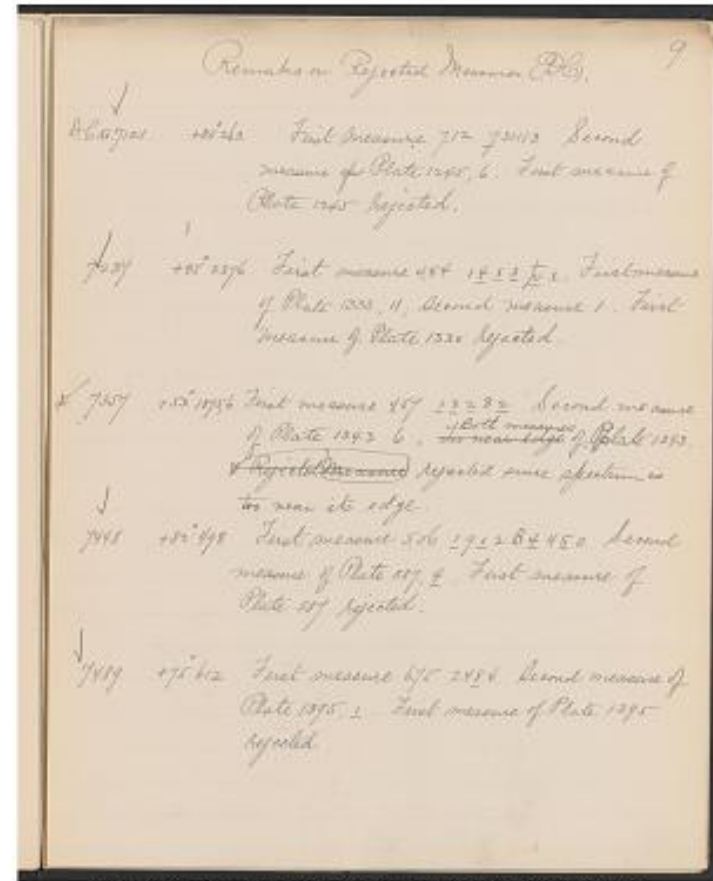 9
Remarks on Rejected Measures
First measure 712 Second
measure of Plate 1245, 6. First measure of
Plate 1245 Rejected.
7237 First measure 484 First measure
of Plate 1333, 11, second measure 1. First
measure of Plate Rejected.
7357 First measure 457 13282 Second measure
of Plate 1343 6. Both measures of Plate 1343
Rejected Measures rejected since spectrum is
too near its edge.
7448 +82° 498 First measure 506 Second
measure of Plate 587, 4 First measure of
Plate 587 rejected.
7489 +75° 612 First measure 675 2484 Second measure of
Plate 1395, 1 First measure of Plate 1395
rejected